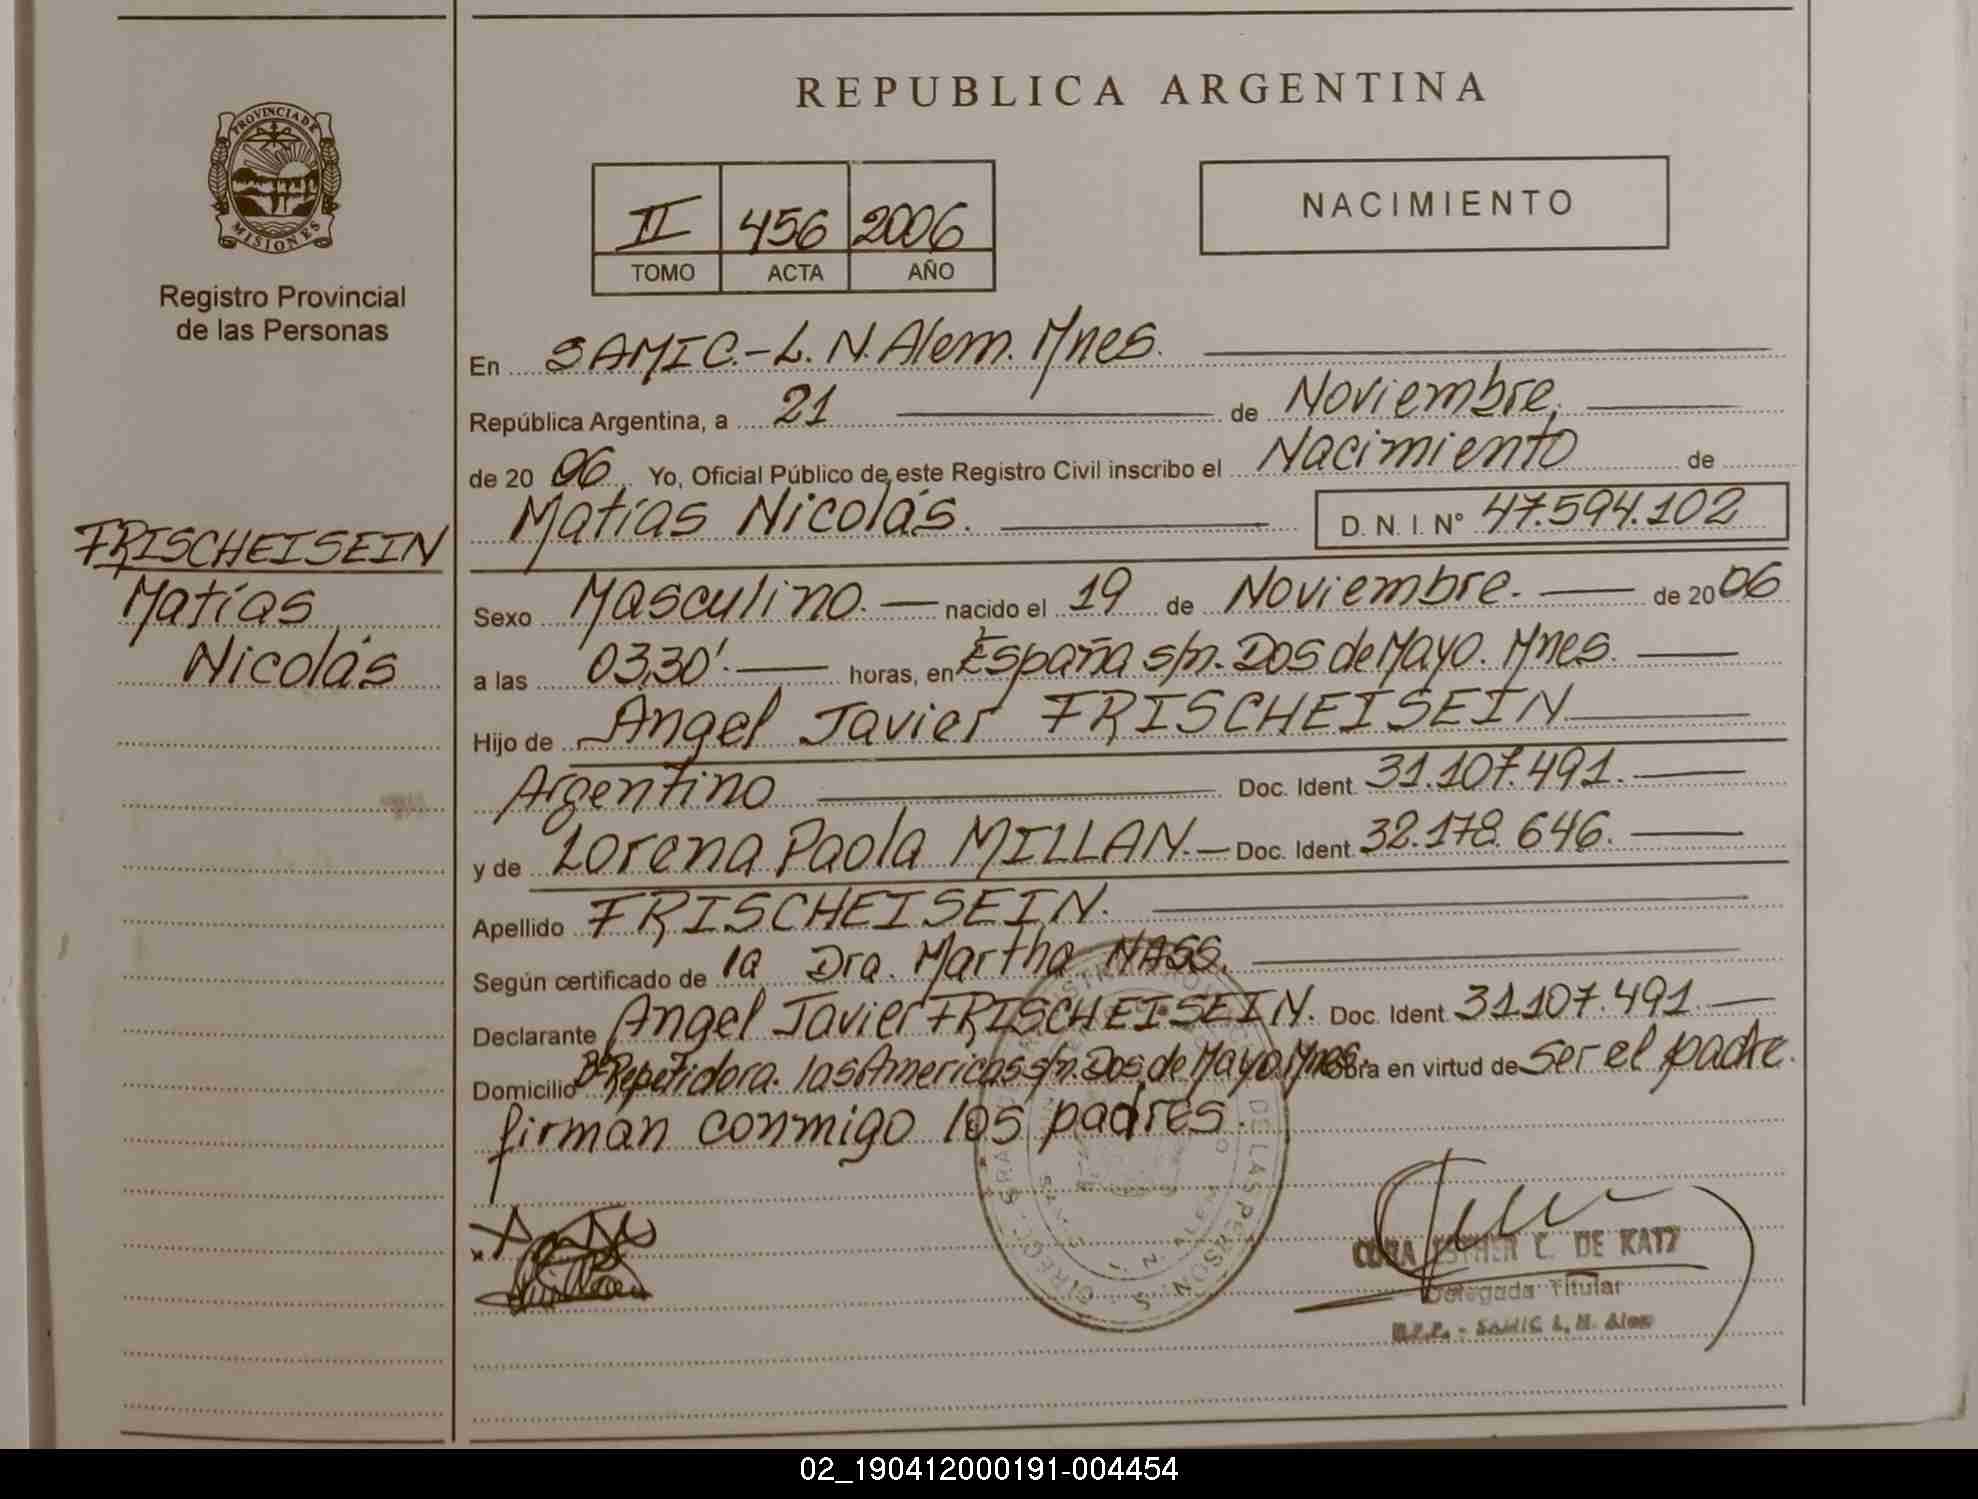 REPUBLICA ARGENTINA
PROVINCIA DE
MISIONES
Registro Provincial
de las Personas
NACIMIENTO
II 456 2006
TOMO ACTA AÑO
FRISCHEISEIN
Matías
Nicolás
En SAMIC.-L.N.Alem. Mnes.
República Argentina, a 21 de Noviembre,
de 20 06 Yo, Oficial Público de este Registro Civil inscribo el Nacimiento de
Matías Nicolás. D. N. I. N° 47.594.102
Sexo Masculino. nacido el 19 de Noviembre. de 20 06
a las 03,30'. horas, en España s/n. Dos de Mayo. Mnes.
Hijo de Angel Javier FRISCHEISEIN
Argentino Doc. Ident. 31.107.491.
y de Lorena Paola MILLAN. Doc. Ident. 32.178.646.
Apellido FRISCHEISEIN.
Según certificado de la Dra. Martha NASS.
Declarante Angel Javier FRISCHEISEIN. Doc. Ident. 31.107.491.
Domicilio Bº Repetidora. las Americas s/n. Dos de Mayo. Mnes. Obra en virtud de Ser el padre.
firman conmigo los padres.
DE LAS PERSONAS
L. N. ALEM
CORA ESTHER C. DE KATZ
Delegada Titular
R.P.P. - SAMIC L. N. Alem
02_190412000191-004454